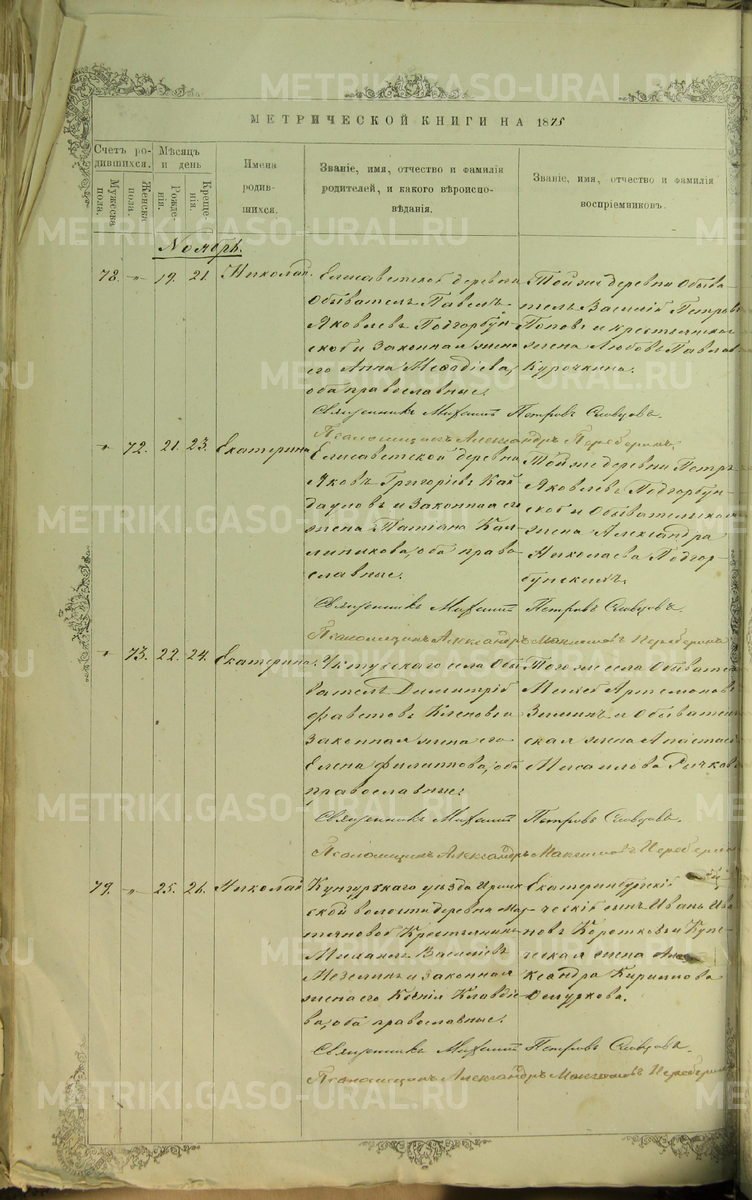 МЕТРИЧЕСКОЙ КНИГИ НА 1875
Счетъ ро-
дившихся.
Мѣсяцъ
и день
Имена
родив-
шихся.
Званіе, имя, отчество и фамилія
родителей, и какого вѣроиспо-
вѣданія.
Званіе, имя, отчество и фамилія
воспріемниковъ.
Мужеска
пола.
Женска
пола.
Рожде-
нія.
Креще-
нія.
Ноябрь.
78. " 19. 21. Николай.
Елисаветской деревни
Обыватель Павелъ
Яковлевъ Подгорбун-
ской и законная жена
его Анна Меѳодіева,
оба православные.
Той же деревни Обыва-
тель Василій Петровъ
Поповъ и крестьянская
жена Любовь Павлова
Курочкина.
Священникъ Михаилъ Петровъ
Псаломщикъ Александръ
" 72. 21. 23. Екатерина
Елисаветской деревни
Яковъ Григорьевъ Кай-
дауловъ и законная его
жена Татьяна Кал-
линикова, оба право-
славные.
Той же деревни Петръ
Яковлевъ Подгорбун-
ской и Обывательская
жена Александра
Николаева Подгор-
бунскихъ.
Священникъ Михаилъ Петровъ
Псаломщикъ Александръ Максимовъ
" 73. 22. 24. Екатерина.
Уктусскаго села Обы-
ватель Димитрій
законная жена его
Елена Филиппова, оба
православные.
Того же села Обыватель
Артемоновъ
Зыминъ и Обыватель-
ская жена Анастасія
Мисаилова
Священникъ Михаилъ Петровъ
Псаломщикъ Александръ Максимовъ
79. " 25. 26. Николай
Кунгурскаго уѣзда
ской волости деревни Мар-
тьяновой Крестьянинъ
Василіевъ
и законная
жена его Ксенія Клавдіе-
ва, оба православные.
Екатеринбургскій
ческій сынъ Иванъ Ива-
новъ Коротковъ и Купе-
ческая жена Але-
ксандра Кириллова
Ошуркова.
Священникъ Михаилъ Петровъ
Псаломщикъ Александръ Максимовъ
METRIKI.GASO-URAL.RU